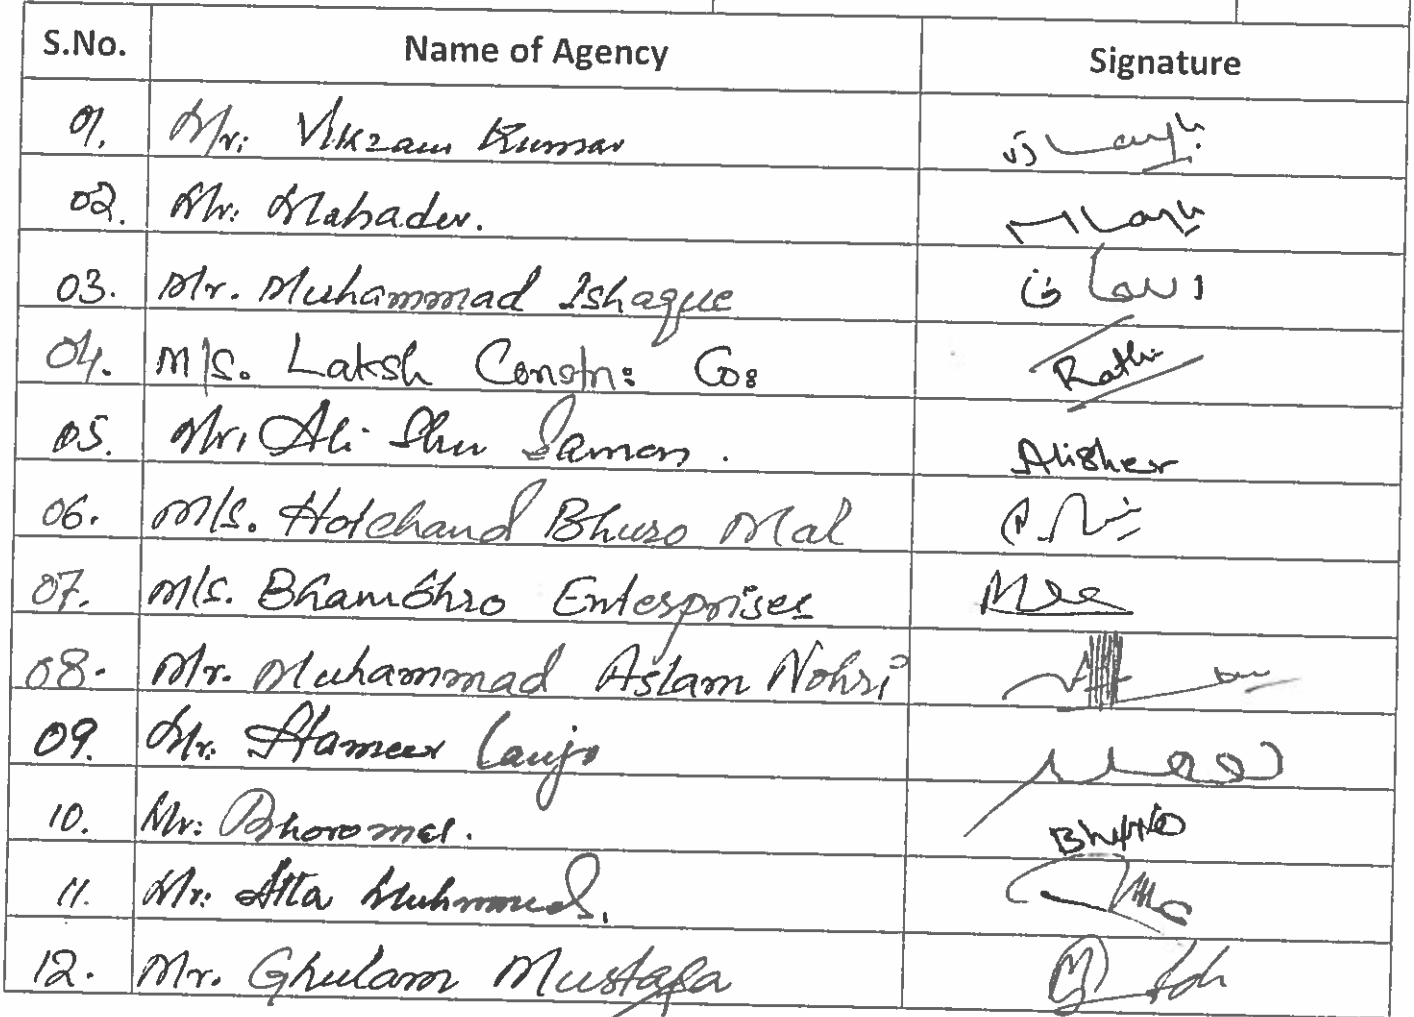 S.No. Name of Agency Signature
01. Mr: Vikram Kumar
02. Mr: Mahadev.
03. Mr. Muhammad Ishaque
04. M/S. Laksh Constn: Co: Rathi
05. Mr, Ali Sher Samon. Alisher
06. M/S. Hotchand Bhuro Mal
07. M/S. Bhambhro Enterprises
08. Mr. Muhammad Aslam Nohri
09. Mr. Hameer Lanjo
10. Mr: Bhoromal.
11. Mr: Atta Muhmmad.
12. Mr. Ghulam Mustafa